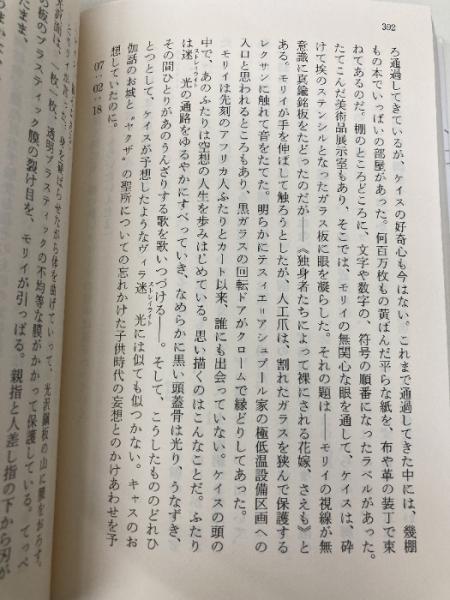 392
ろ通過してきているが、ケイスの好奇心も今はない。これまで通過してきた中には、幾棚
もの本でいっぱいの部屋があった。何百万枚もの黄ばんだ平らな紙を、布や革の装丁で束
ねてあるのだ。棚のところどころに、文字や数字の、符号の順番になったラベルがあった。
たてこんだ美術品展示室もあり、そこでは、モリイの無関心な眼を通して、ケイスは、砕
けて埃のステンシルとなったガラス板に眼を凝らした。それの題は――モリイの視線が無
意識に真鍮銘板をたどったのだが――《独身者たちによって裸にされる花嫁、さえも》と
ある。モリイが手を伸ばして触ろうとしたが、人工爪は、割れたガラスを挟んで保護する
レクサンに触れて音をたてた。明らかにテスィエ＝アシュプール家の極低温設備区画への
入口と思われるところもあり、黒ガラスの回転ドアがクロームで縁どりしてあった。
モリイは先刻のアフリカ人ふたりとカート以来、誰にも出会っていない。ケイスの頭の
中で、あのふたりは空想の人生を歩みはじめている。思い描くのはこんなことだ。ふたり
迷光の通路をゆるやかにすべっていき、なめらかに黒い頭蓋骨は光り、うなずき、
ストレイライト
その間ひとりがあのうんざりする歌を歌いつづける――。そして、こうしたもののどれひ
とつとして、ケイスが予想したようなヴィラ迷光には似ても似つかない。キャスのお
ストレイライト
伽話のお城と〝ヤクザ〟の聖所についての忘れかけた子供時代の妄想とのかけあわせを予
想していたのに。
07：02：18
一枚一枚、透明プラスティックの不均等な膜がかかって保護している。てっぺ
のプラスティック膜の裂け目を、モリイが引っぱる。親指と人差し指の下から刃が